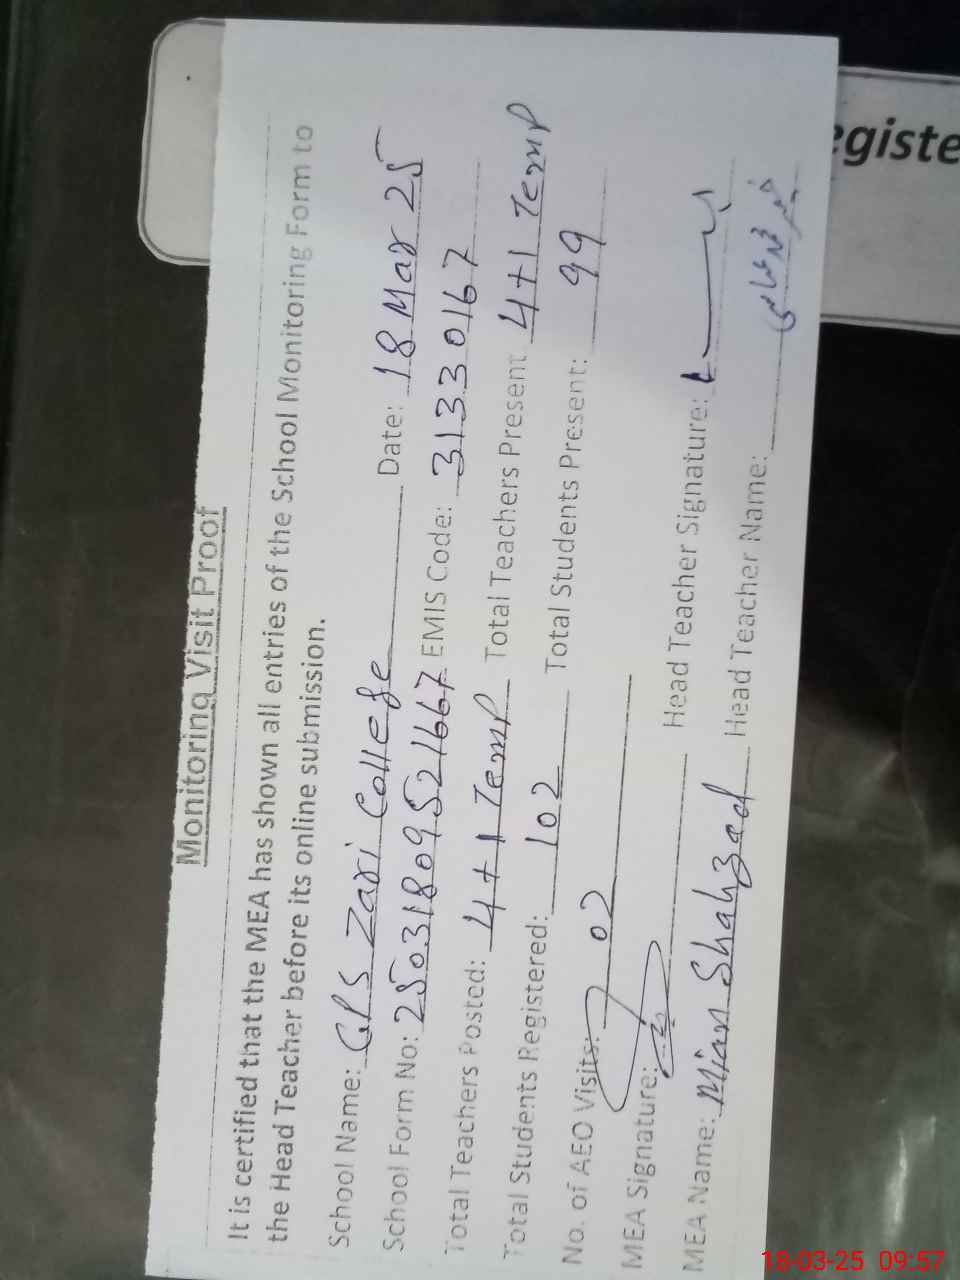 Monitoring Visit Proof
It is certified that the MEA has shown all entries of the School Monitoring Form to
the Head Teacher before its online submission.
School Name: GPS Zari College Date: 18 Mar 25
School Form No: 25031809521667 EMIS Code: 31330167
Total Teachers Posted: 4+1 Temp Total Teachers Present 4+1 Temp
Total Students Registered: 102 Total Students Present: 99
No. of AEO Visits: 02
MEA Signature: Head Teacher Signature:
MEA Name: Mian Shahzad Head Teacher Name:
egiste
18-03-25 09:57